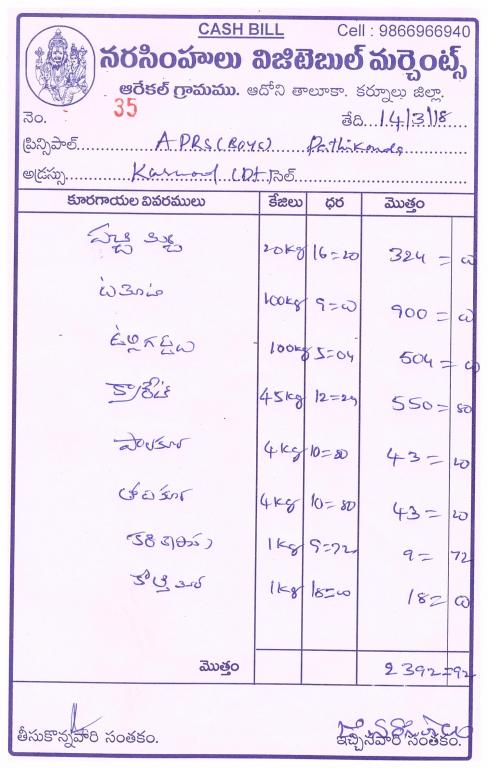 CASH BILL Cell : 9866966940
నరసింహులు విజిటెబుల్ మర్చెంట్స్
ఆరేకల్ గ్రామము. ఆదోని తాలూకా. కర్నూలు జిల్లా.
నెం. 35 తేది. 14/3/18
ప్రిన్సిపాల్ APRS(Boys) Pathikonda
అడ్రస్సు Kurnool (Dt) సెల్.
కూరగాయల వివరములు కేజిలు ధర మొత్తం
పచ్చి మిర్చి 20kg 16=20 324=
టమోటా 100kg 9= 900=
ఉల్లిగడ్డలు 100kg 5=04 504=
క్యారెట్ 45kg 12=24 550=80
పాలకూర 4kg 10=80 43=20
తోటకూర 4kg 10=80 43=20
కరివేపాకు 1kg 9=72 9=72
కొత్తిమీర 1kg 18=00 18=00
మొత్తం 2392=92
తీసుకొన్నవారి సంతకం. ఇచ్చినవారి సంతకం.